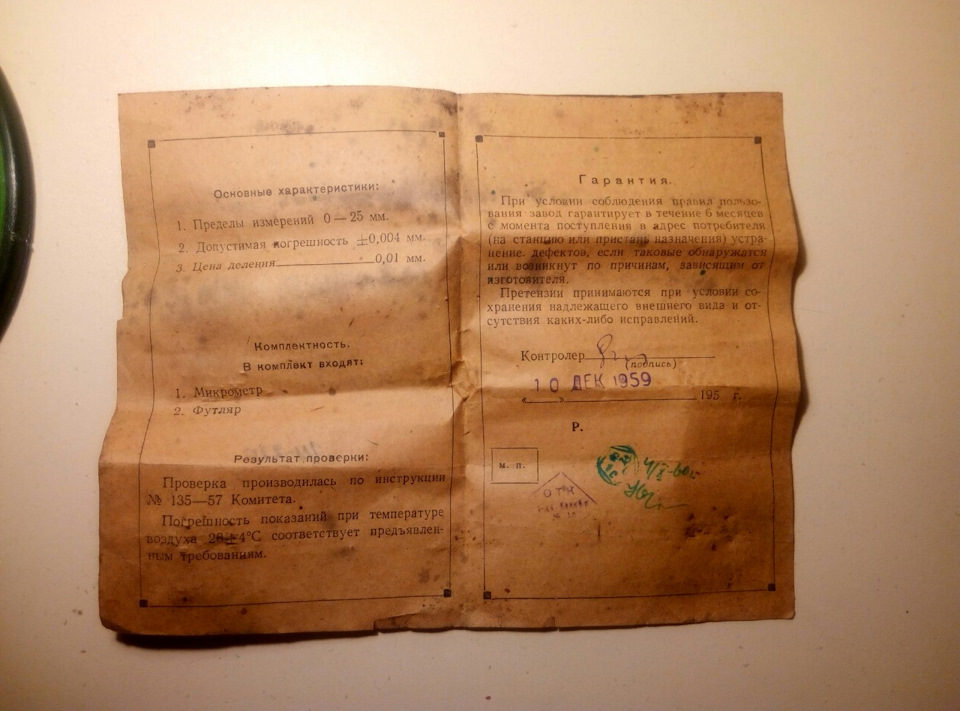 Основные характеристики:
1. Пределы измерений 0—25 мм.
2. Допустимая погрешность ±0,004 мм.
3. Цена деления 0,01 мм.
Комплектность.
В комплект входят:
1. Микрометр
2. Футляр
Результат проверки:
Проверка производилась по инструкции
№ 135—57 Комитета.
Погрешность показаний при температуре
воздуха 20±4°С соответствует предъявлен-
ным требованиям.
Гарантия.
При условии соблюдения правил пользо-
вания завод гарантирует в течение 6 месяцев
с момента поступления в адрес потребителя
(на станцию или пристань назначения) устра-
нение дефектов, если таковые обнаружатся
или возникнут по причинам, зависящим от
изготовителя.
Претензии принимаются при условии со-
хранения надлежащего внешнего вида и от-
сутствия каких-либо исправлений.
Контролер
(подпись)
10 ДЕК 1959
« » 195 г.
Р.
м. п.
ОТК